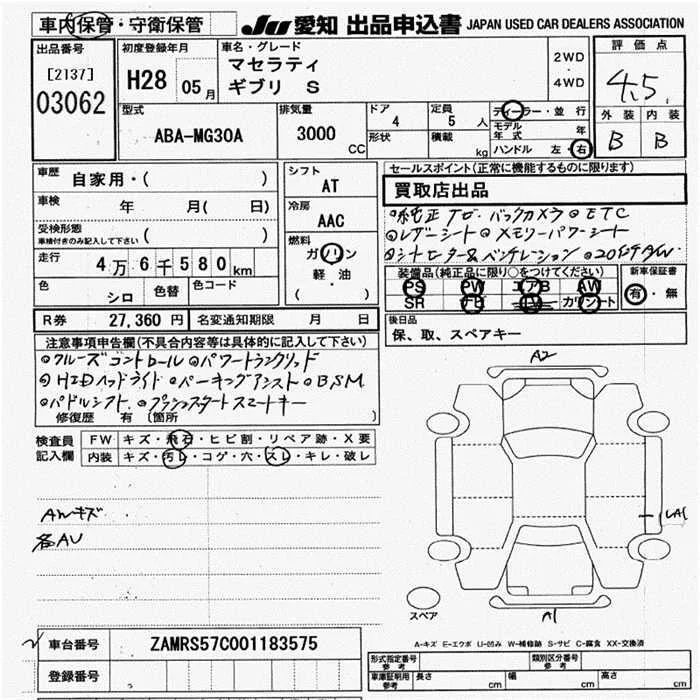 車内保管・守衛保管
JU 愛知 出品申込書 JAPAN USED CAR DEALERS ASSOCIATION
出品番号
[2137]
03062
初度登録年月
H28 05月
車名・グレード
マセラティ
ギブリ S
2WD
・
4WD
評価点
4.5
外装 内装
B B
型式
ABA-MG30A
排気量
3000
CC
ドア
4
形状
定員
5 人
積載
kg
ディーラー・並行
モデル年式 年
ハンドル 左・右
車歴
自家用・( )
車検
年 月( 日)
受検形態
車検付きのみ記入して下さい ( )
走行
4万6千580km
色
シロ
色替
色コード
シフト
AT
冷房
AAC
燃料
ガソリン
軽・油
( )
セールスポイント(正常に機能するものに限ります)
買取店出品
◎純正ナビ・バックカメラ◎ETC
◎レザーシート◎メモリーパワーシート
◎シートヒーター&ベンチレーション◎20インチAW
装備品(純正品に限り○をつけてください)
PS PW エアB AW
SR ナビ TV カワシート
新車保証書
有・無
R券 27,360 円
名変通知期限 月 日
後日品
保、取、スペアキー
注意事項申告欄(不具合内容等は具体的に記入して下さい)
◎クルーズコントロール◎パワートランクリッド
◎HIDヘッドライト◎パーキングアシスト◎BSM
◎パドルシフト◎プッシュスタートスマートキー
修復歴 有 (箇所 )
検査員
記入欄
FW キズ・飛石・ヒビ割・リペア跡・X要
内装 キズ・汚レ・コゲ・穴・スレ・キレ・破レ
AWキズ
各AU
A2
UA1
A1
スペア
A-キズ E-エクボ U-凹み W-補修跡 S-サビ C-腐食 XX-交換済
車台番号 ZAMRS57C001183575
登録番号
形式指定番号
参考
類別区分番号
参考
車庫証明用
参考
長さ cm 幅 cm 高さ cm